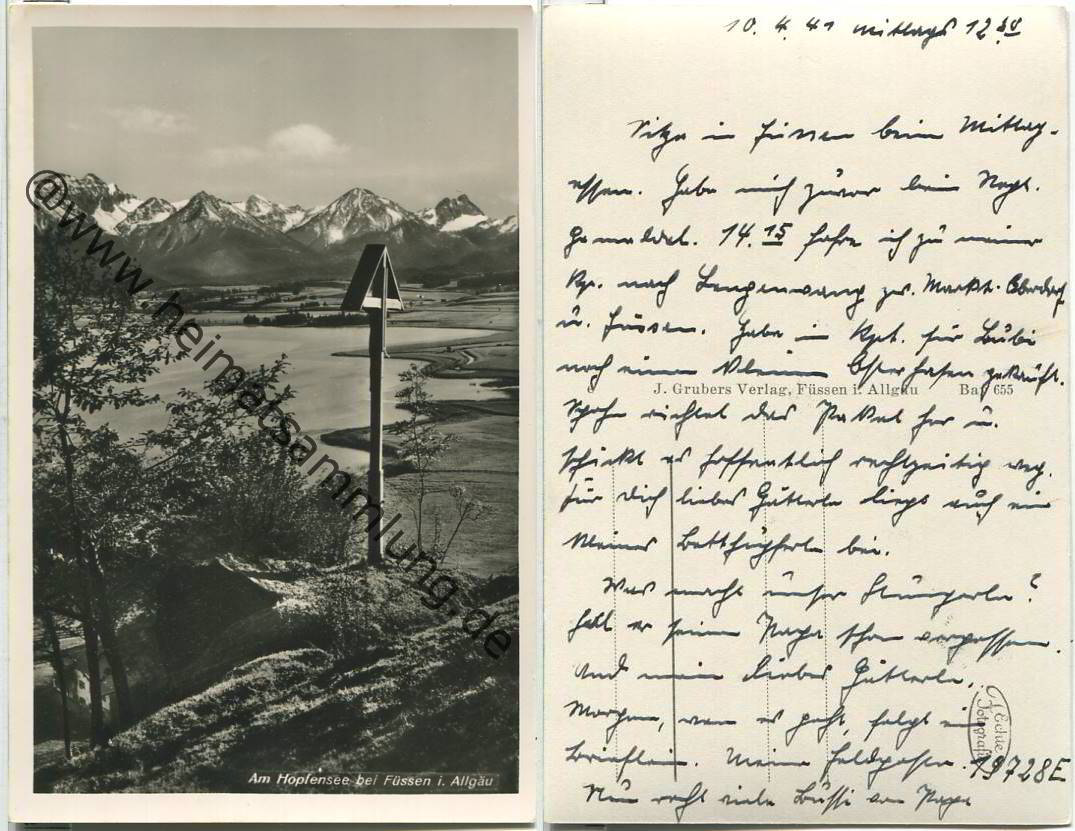 @www.heimatsammlung.de
Am Hopfensee bei Füssen i. Allgäu
10. 4. 41 mittags 12 30
Sitze in Füssen beim Mittag-
essen. Habe mich zuvor beim Regt.
gemeldet. 14.15 fahre ich zu meiner
Kp. nach Lengenwang zw. Markt-Oberdorf
u. Füssen. Habe in Kpt. für Bubi
noch einen kleinen Osterhasen gekauft.
J. Grubers Verlag, Füssen i. Allgäu Bay 655
richtet das Paket her u.
schickt es hoffentlich rechtzeitig weg.
Für Dich liebes Gutterle liegt auch ein
kleines Betthupferle bei.
Was macht unser ?
Hat er seinen Papa schon vergessen.
Und mein liebes Gutterle.
Morgen, wenn es geht, folgt ein
Brieflein. Meine Feldpostnr. 19728E
Echte Fotografie
Nun recht viele Bussi von Papa